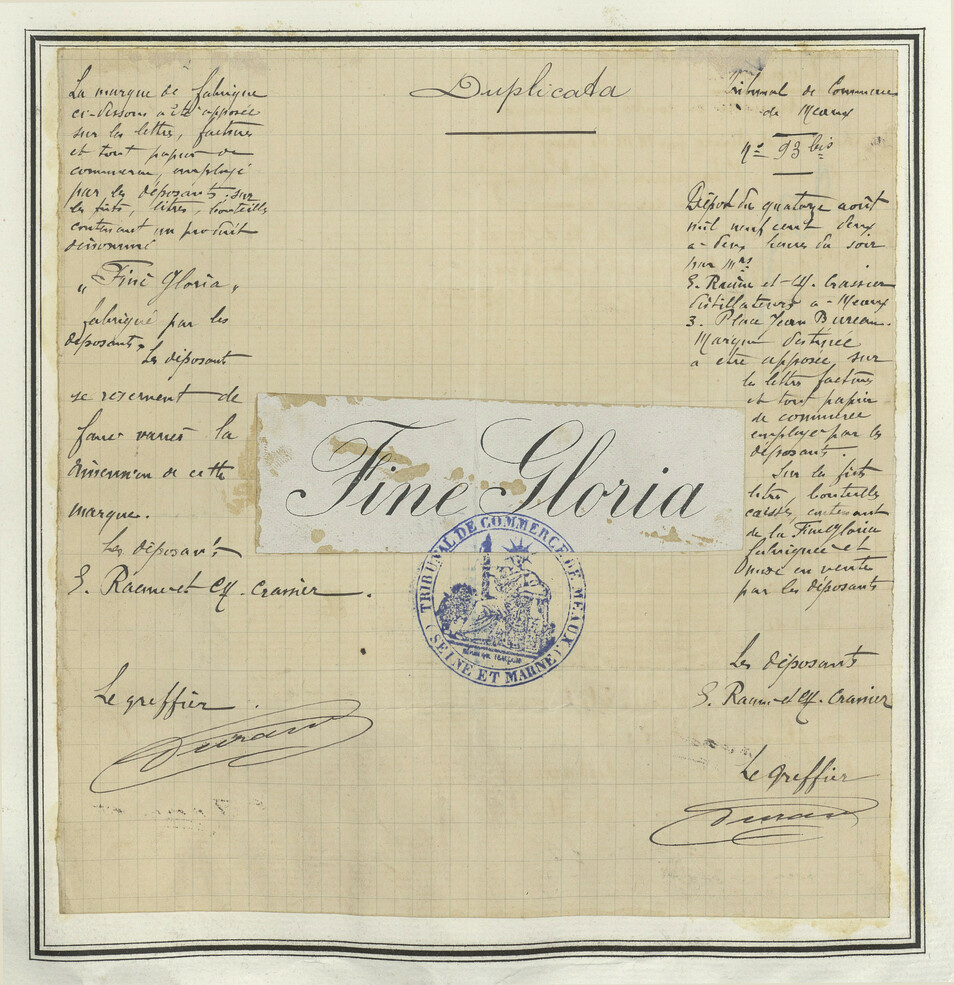 Duplicata
La marque de fabrique
ci-dessous a été apposée
sur les lettres, factures
et tout papier de
commerce, employé
par les déposants, sur
les fûts, litres, bouteilles
contenant un produit
dénommé
"Fine Gloria"
fabriqué par les
déposants. Les déposants
se reservent de
faire varier la
dimension de cette
marque.
Les déposants
E. Racine et Ch. Crassier.
Le greffier.
Durand
Fine Gloria
TRIBUNAL DE COMMERCE DE MEAUX
(SEINE ET MARNE)
Tribunal de Commerce
de Meaux
Nº 93 bis
Dépôt du quatorze août
mil neuf cent deux
à deux heures du soir
par Mrs
E. Racine et Ch. Crassier
distillateurs à Meaux
3. Place Jean Bureau.
Marque destinée
a être apposée, sur
les lettres factures
et tout papier
de commerce
employé par les
déposants.
Sur les fûts
litres, bouteilles
caisses, contenant
de la Fine Gloria
fabriquée et
mise en vente
par les déposants
Les déposants
E. Racine et Ch. Crassier
Le greffier
Durand